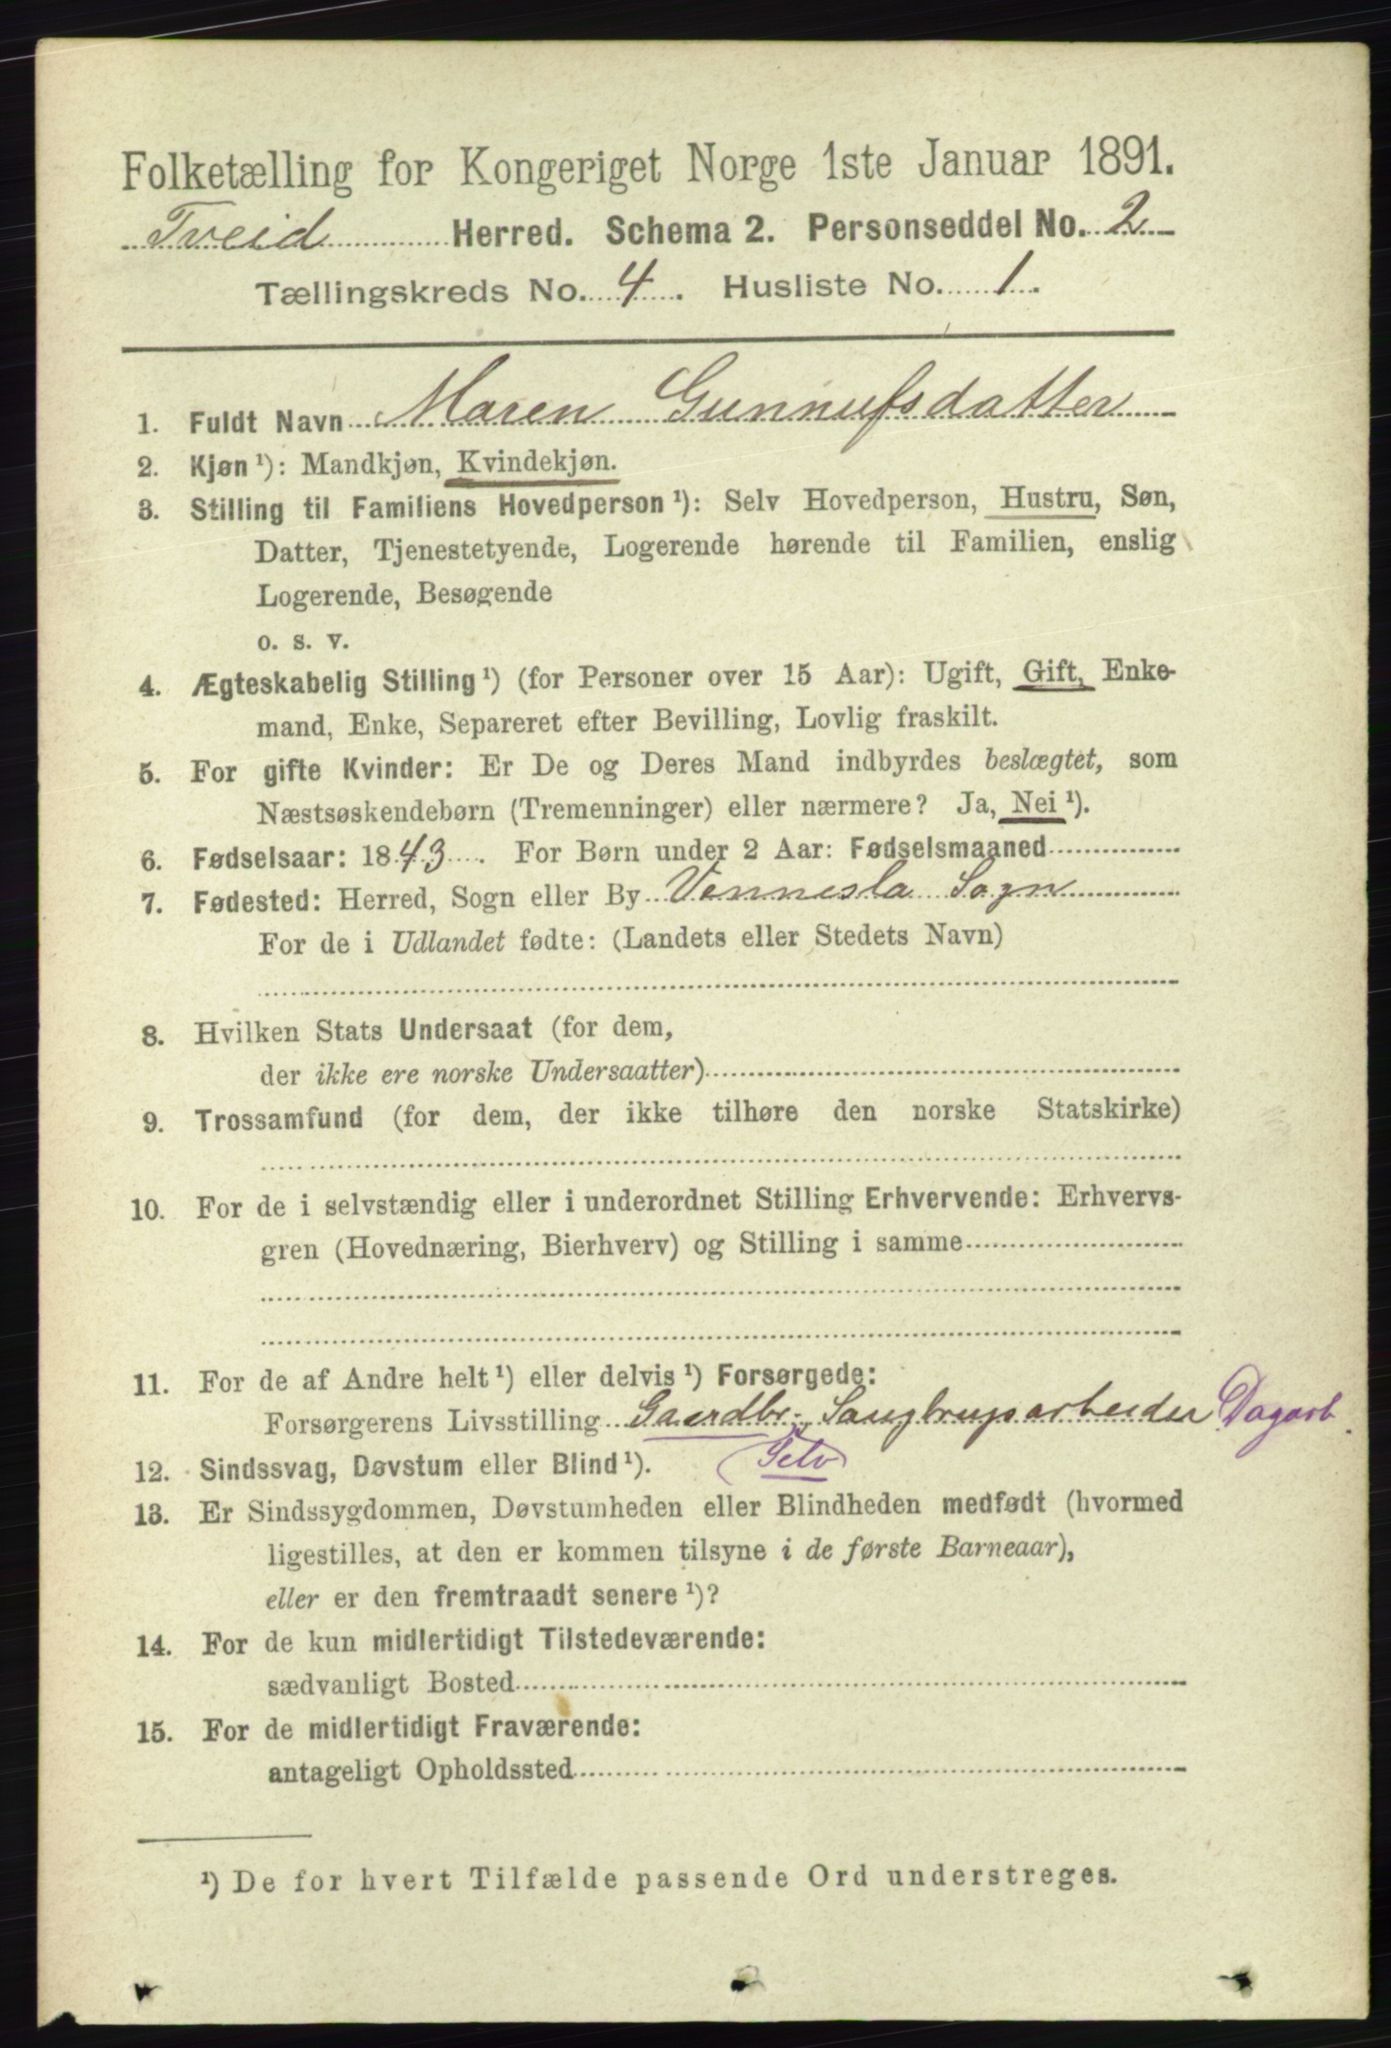 Folketælling for Kongeriget Norge 1ste Januar 1891.
Tveid Herred. Schema 2. Personseddel No. 2
Tællingskreds No. 4. Husliste No. 1.
1. Fuldt Navn Maren Gunnufsdatter
2. Kjøn ¹): Mandkjøn, Kvindekjøn.
3. Stilling til Familiens Hovedperson ¹): Selv Hovedperson, Hustru, Søn,
Datter, Tjenestetyende, Logerende hørende til Familien, enslig
Logerende, Besøgende
o. s. v.
4. Ægteskabelig Stilling ¹) (for Personer over 15 Aar): Ugift, Gift, Enke-
mand, Enke, Separeret efter Bevilling, Lovlig fraskilt.
5. For gifte Kvinder: Er De og Deres Mand indbyrdes beslægtet, som
Næstsøskendebørn (Tremenninger) eller nærmere? Ja, Nei ¹).
6. Fødselsaar: 1843. For Børn under 2 Aar: Fødselsmaaned
7. Fødested: Herred, Sogn eller By Vennesla Sogn
For de i Udlandet fødte: (Landets eller Stedets Navn)
8. Hvilken Stats Undersaat (for dem,
der ikke ere norske Undersaatter)
9. Trossamfund (for dem, der ikke tilhøre den norske Statskirke)
10. For de i selvstændig eller i underordnet Stilling Erhvervende: Erhvervs-
gren (Hovednæring, Bierhverv) og Stilling i samme
11. For de af Andre helt ¹) eller delvis ¹) Forsørgede:
Forsørgerens Livsstilling Gaardbr. Saugbrugsarbeider Dagarb.
12. Sindssvag, Døvstum eller Blind ¹). (Selv)
13. Er Sindssygdommen, Døvstumheden eller Blindheden medfødt (hvormed
ligestilles, at den er kommen tilsyne i de første Barneaar),
eller er den fremtraadt senere ¹)?
14. For de kun midlertidigt Tilstedeværende:
sædvanligt Bosted
15. For de midlertidigt Fraværende:
antageligt Opholdssted
¹) De for hvert Tilfælde passende Ord understreges.